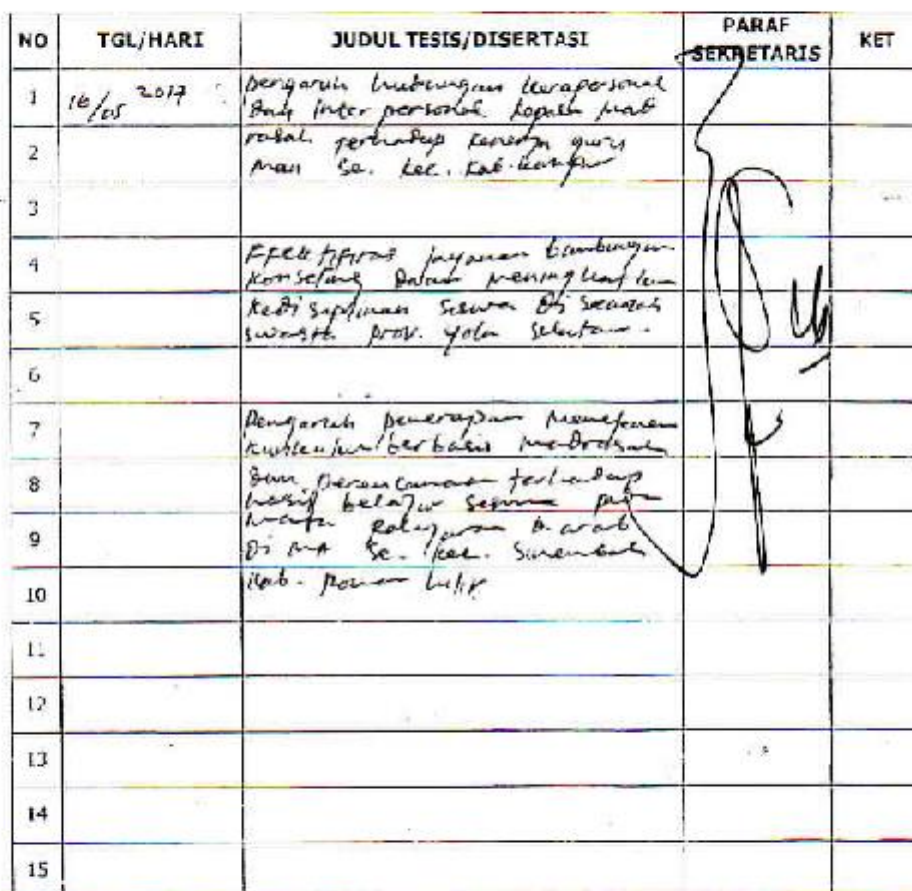 NO TGL/HARI JUDUL TESIS/DISERTASI PARAF SEKRETARIS KET
1 16/05 2017 pengaruh hubungan
Dan inter personal kepala mad
2 rasah terhadap kenerja guru
Man Se. kec. Kab. Kampar
3
4 Efektifitas layanan bimbingan
Konseling Dalam meningkatkan
5 Kedisiplinan Siswa Di
swasta prov.
6
7 Pengaruh penerapan
kurikulum berbasis madrasah
8 Dan perencanaan terhadap
hasil belajar Siswa pada
9 mata B. arab
Di MA Se. kec.
10 Kab.
11
12
13
14
15